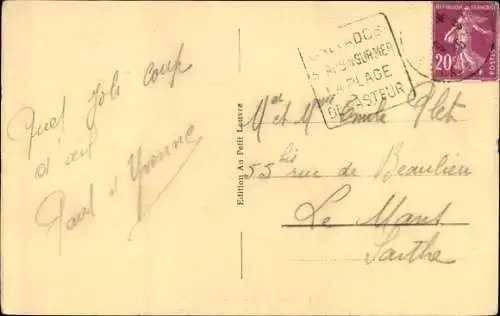 Quel joli coup
d'œil
Paul et Yvonne
Edition Au Petit Louvre
CALVADOS
LA PLAGE
DE PASTEUR
REPUBLIQUE FRANÇAISE
20c
POSTES
M et Mme Emile Plet
55 bis rue de Beaulieu
Le Mans
Sarthe